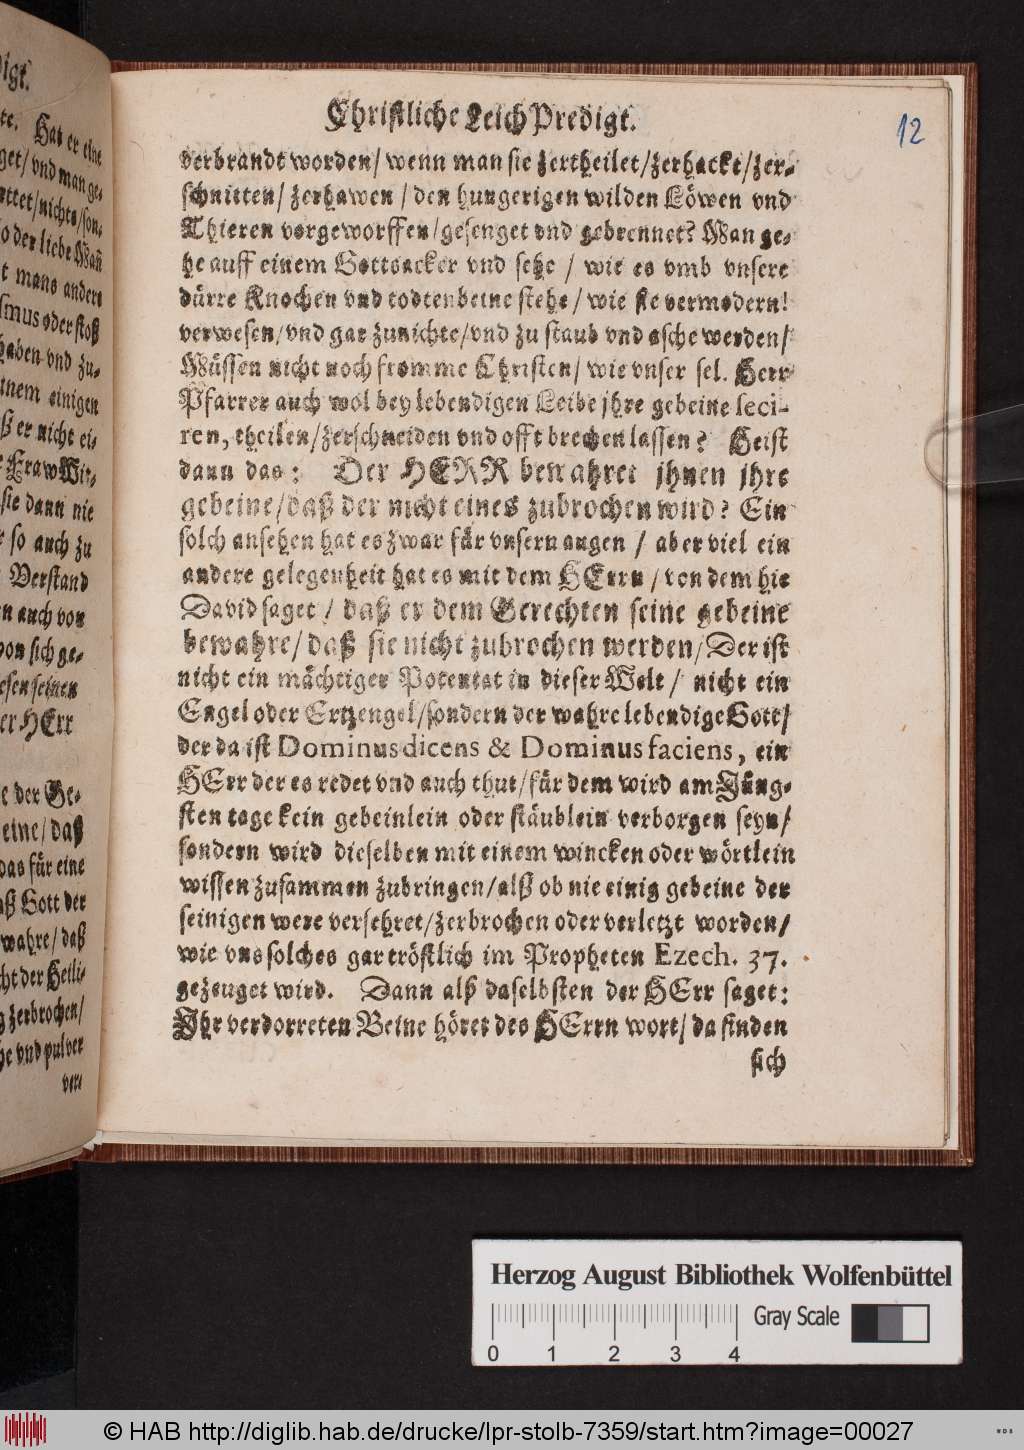 Christliche LeichPredigt.
12
verbrandt worden/ wenn man sie zertheilet/zerhackt/zer-
schnitten/ zerhawen / den hungerigen wilden Löwen vnd
Thieren vorgeworffen/gesenget vnd gebrennet? Man ge-
he auff einem Gottsacker vnd sehe / wie es vmb vnsere
dürre Knochen vnd todtenbeine stehe/ wie sie vermodern!
verwesen/vnd gar zunichte/vnd zu staub vnd asche werden/
Müssen nicht noch fromme Christen/ wie vnser sel. Herr
Pfarrer auch wol bey lebendigen Leibe jhre gebeine seci-
ren, theilen/zerschneiden vnd offt brechen lassen? Heist
dann das: Der HERR bewahret jhnen jhre
gebeine/daß der nicht eines zubrochen wird? Ein
solch ansehen hat es zwar für vnsern augen / aber viel ein
andere gelegenheit hat es mit dem HErrn/ von dem hie
David saget / daß er dem Gerechten seine gebeine
bewahre/ daß sie nicht zubrochen werden/ Der ist
nicht ein mächtiger Potentat in dieser Welt/ nicht ein
Engel oder Ertzengel/sondern der wahre lebendige Gott/
der da ist Dominus dicens & Dominus faciens, ein
HErr der es redet vnd auch thut/ für dem wird am Jüng-
sten tage kein gebeinlein oder stäublein verborgen seyn/
sondern wird dieselben mit einem wincken oder wörtlein
wissen zusammen zubringen/alß ob nie einig gebeine der
seinigen were versehret/zerbrochen oder verletzt worden/
wie vns solches gar tröstlich im Propheten Ezech. 37.
gezeuget wird. Dann alß daselbsten der HErr saget:
Ihr verdorreten Beine höret des HErrn wort/ da finden
sich
digt.
te. Hat er eine
get/ vnd man ge-
nichts/son-
o der liebe Mañ
t mans anders
smus oder stoß
haben vnd zu-
einem einigen
ß er nicht ei-
Fraw Wit-
sie dann nie
so auch zu
Verstand
n auch von
von sich ge-
esen seinen
er HErr
e der Ge-
eine/ daß
das für eine
aß Gott der
wahre/ daß
cht der Heili-
g zerbrochen/
he vnd pulver
ver-
Herzog August Bibliothek Wolfenbüttel
Gray Scale
0 1 2 3 4
© HAB http://diglib.hab.de/drucke/lpr-stolb-7359/start.htm?image=00027